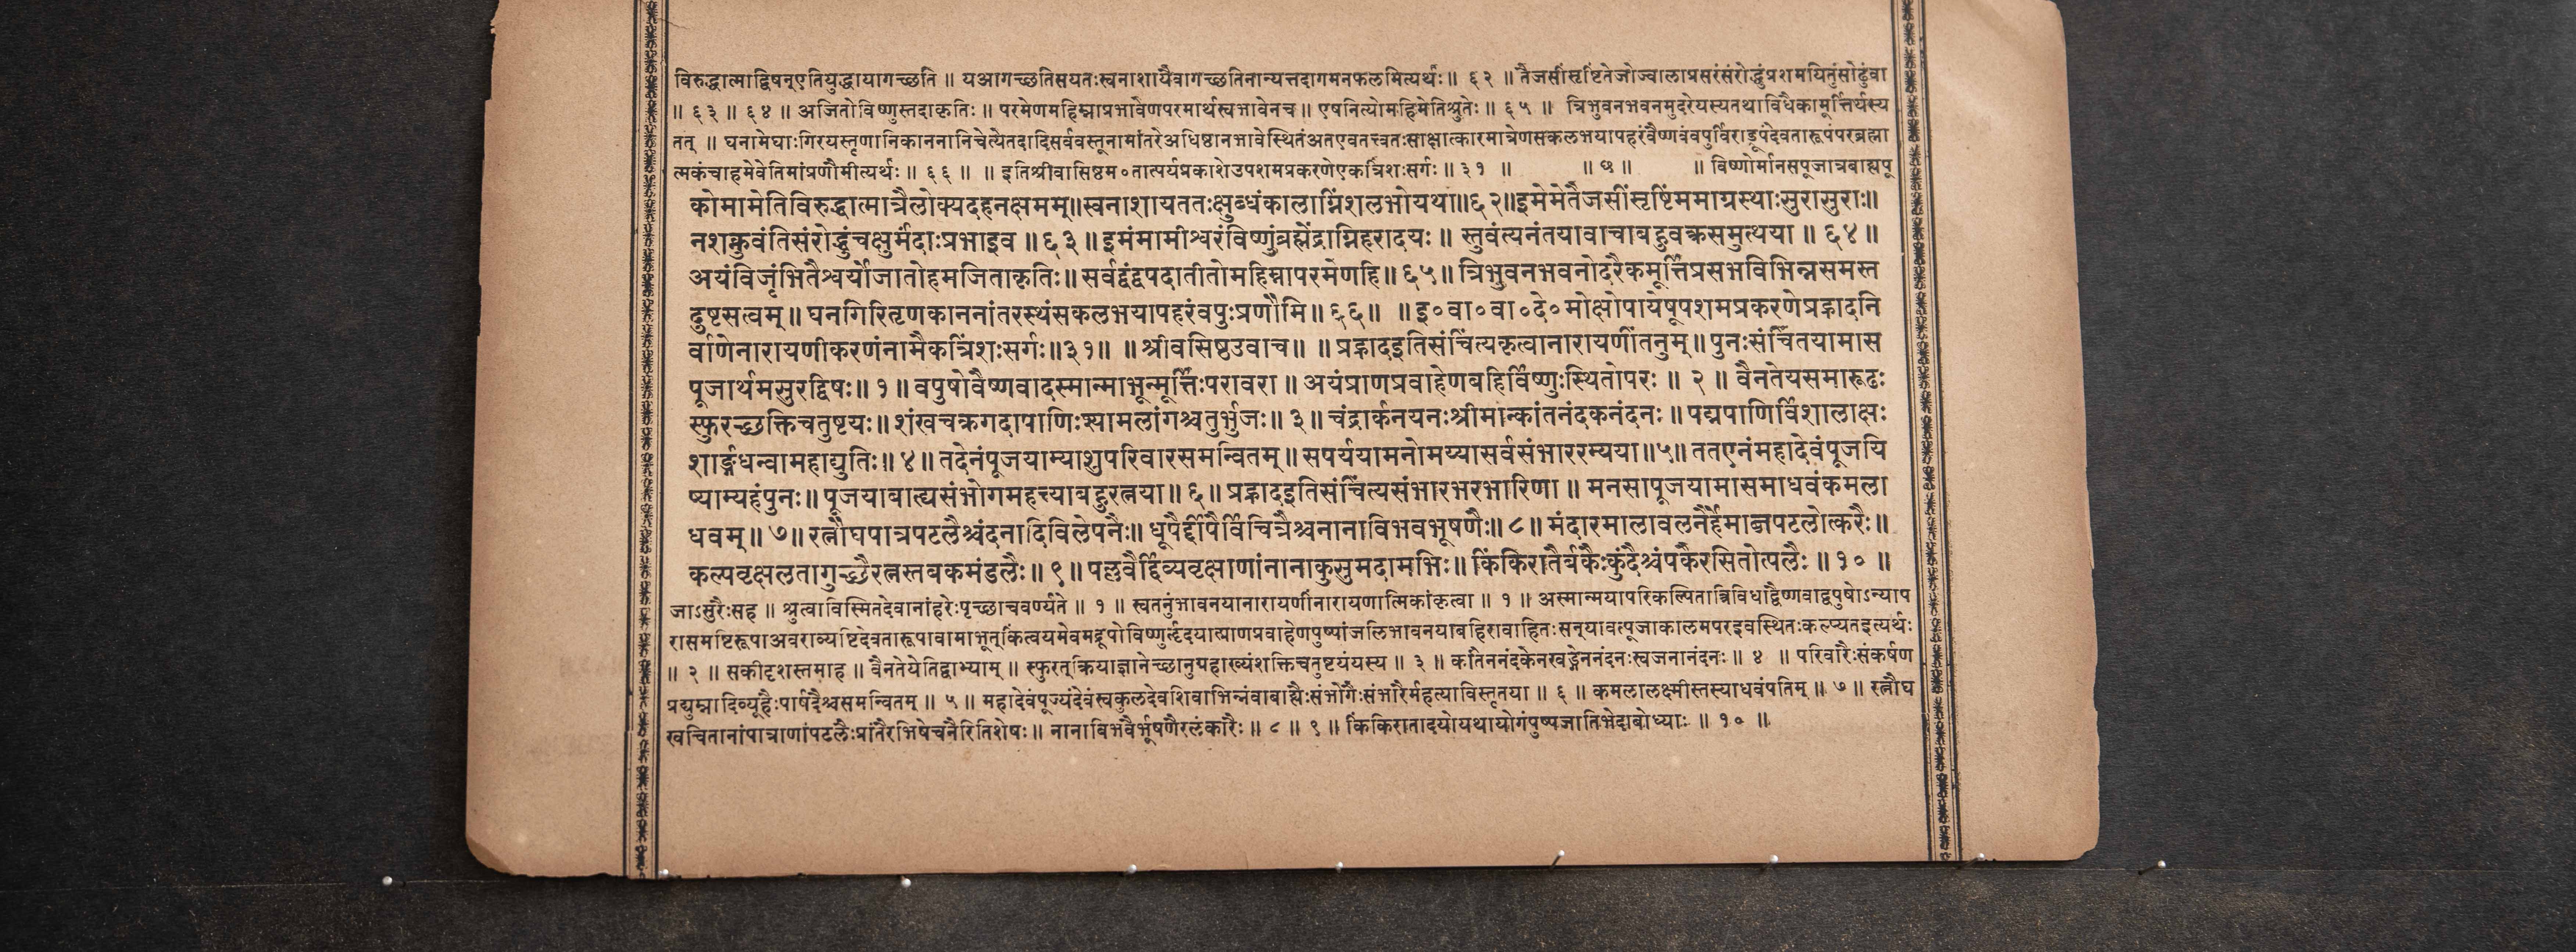 विरुद्धात्माद्विषन्एतियुद्धायागच्छति ॥ यआगच्छतिसयतःस्वनाशायैवागच्छतिनान्यत्तदागमनफलमित्यर्थः ॥ ६२ ॥ तैजसींसृष्टिंतेजोज्वालाप्रसरंसंरोद्धुंप्रशमयितुंसोढुंवा
॥ ६३ ॥ ६४ ॥ अजितोविष्णुस्तदाकृतिः ॥ परमेणमहिम्नाप्रभावेणपरमार्थस्वभावेनच ॥ एषनित्योमहिमेतिश्रुतेः ॥ ६५ ॥ त्रिभुवनभवनमुदरेयस्यतथाविधैकामूर्त्तिर्यस्य
तत् ॥ घनामेघाःगिरयस्तृणानिकाननानिचेत्येतदादिसर्ववस्तूनामांतरेअधिष्ठानभावेस्थितंअतएवतत्त्वतःसाक्षात्कारमात्रेणसकलभयापहरंवैष्णवंवपुर्विराड्रूपंदेवतारूपंपरब्रह्मा
त्मकंचाहमेवेतिमांप्रणौमीत्यर्थः ॥ ६६ ॥ ॥ इतिश्रीवासिष्ठम०तात्पर्यप्रकाशेउपशमप्रकरणेएकत्रिंशःसर्गः ॥ ३१ ॥ ॥ छ ॥ ॥ विष्णोर्मानसपूजात्रबाह्यपू
कोमामेतिविरुद्धात्मात्रैलोक्यदहनक्षमम् ॥ स्वनाशायततःक्षुब्धंकालाग्निंशलभोयथा ॥ ६२ ॥ इमेमेतैजसींसृष्टिंममाग्रस्थाःसुरासुराः ॥
नशक्नुवंतिसंरोद्धुंचक्षुर्मंदाःप्रभाइव ॥ ६३ ॥ इमंमामीश्वरंविष्णुंब्रह्मेंद्राग्निहरादयः ॥ स्तुवंत्यनंतयावाचाबहुवक्रसमुत्थया ॥ ६४ ॥
अयंविजृंभितैश्वर्योजातोहमजिताकृतिः ॥ सर्वद्वंद्वपदातीतोमहिम्नापरमेणहि ॥ ६५ ॥ त्रिभुवनभवनोदरैकमूर्त्तिंप्रसभविभिन्नसमस्त
दुष्टसत्वम् ॥ घनगिरितृणकाननांतरस्थंसकलभयापहरंवपुःप्रणौमि ॥ ६६ ॥ ॥ इ०वा०वा०दे०मोक्षोपायेषूपशमप्रकरणेप्रह्लादनि
र्वाणेनारायणीकरणंनामैकत्रिंशःसर्गः ॥ ३१ ॥ ॥ श्रीवसिष्ठउवाच ॥ ॥ प्रह्लादइतिसंचिंत्यकृत्वानारायणींतनुम् ॥ पुनःसंचिंतयामास
पूजार्थमसुरद्विषः ॥ १ ॥ वपुषोवैष्णवादस्मान्माभून्मूर्त्तिःपरावरा ॥ अयंप्राणप्रवाहेणबहिर्विष्णुःस्थितोपरः ॥ २ ॥ वैनतेयसमारूढः
स्फुरच्छक्तिचतुष्टयः ॥ शंखचक्रगदापाणिःश्यामलांगश्चतुर्भुजः ॥ ३ ॥ चंद्रार्कनयनःश्रीमान्कांतनंदकनंदनः ॥ पद्मपाणिर्विशालाक्षः
शार्ङ्गधन्वामहाद्युतिः ॥ ४ ॥ तदेनंपूजयाम्याशुपरिवारसमन्वितम् ॥ सपर्ययामनोमय्यासर्वसंभाररम्यया ॥ ५ ॥ ततएनंमहादेवंपूजयि
ष्याम्यहंपुनः ॥ पूजयाबाह्यसंभोगमहत्त्याबहुरत्नया ॥ ६ ॥ प्रह्लादइतिसंचिंत्यसंभारभरभारिणा ॥ मनसापूजयामासमाधवंकमला
धवम् ॥ ७ ॥ रत्नौघपात्रपटलैश्चंदनादिविलेपनैः ॥ धूपैर्द्दीपैर्विचित्रैश्चनानाविभवभूषणैः ॥ ८ ॥ मंदारमालावलनैर्हेमाब्जपटलोत्करैः ॥
कल्पवृक्षलतागुच्छैरत्नस्तबकमंडलैः ॥ ९ ॥ पल्लवैर्द्दिव्यवृक्षाणांनानाकुसुमदामभिः ॥ किंकिरातैर्बकैःकुंदैश्चंपकैरसितोत्पलैः ॥ १० ॥
जाऽसुरैःसह ॥ श्रुत्वाविस्मितदेवानांहरेःपृच्छाचवर्ण्यते ॥ १ ॥ स्वतनुंभावनयानारायणींनारायणात्मिकांकृत्वा ॥ १ ॥ अस्मान्मयापरिकल्पितात्रिविधाद्वैष्णवाद्वपुषोऽन्याप
रासमष्टिरूपाअवराव्यष्टिदेवतारूपावामाभूत्किंत्वयमेवमद्रूपोविष्णुर्हृदयात्प्राणप्रवाहेणपुष्पांजलिभावनयाबहिरावाहितःसन्यावत्पूजाकालमपरइवस्थितःकल्प्यतइत्यर्थः
॥ २ ॥ सकीदृशस्तमाह ॥ वैनतेयेतिद्वाभ्याम् ॥ स्फुरत्क्रियाज्ञानेच्छानुग्रहाख्यंशक्तिचतुष्टयंयस्य ॥ ३ ॥ कांतेननंदकेनखड्गेननंदनःस्वजनानंदनः ॥ ४ ॥ परिवारैःसंकर्षण
प्रद्युम्नादिव्यूहैःपार्षदैश्चसमन्वितम् ॥ ५ ॥ महादेवंपूज्यंदेवंस्वकुलदेवशिवाभिन्नंवाबाह्यैःसंभोगैःसंभारैर्महत्याविस्तृतया ॥ ६ ॥ कमलालक्ष्मीस्तस्याधवंपतिम् ॥ ७ ॥ रत्नौघ
खचितानांपात्राणांपटलैःप्रांतैरभिषेचनैरितिशेषः ॥ नानाविभवैर्भूषणैरलंकारैः ॥ ८ ॥ ९ ॥ किंकिरातादयोयथायोगंपुष्पजातिभेदाबोध्याः ॥ १० ॥